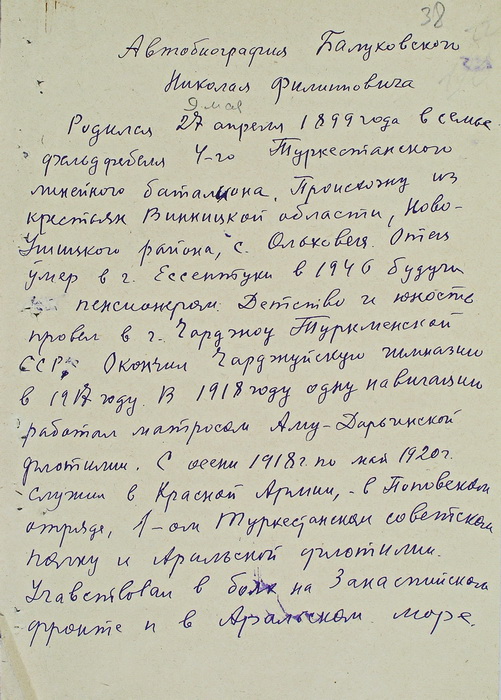 38
Автобиография Балуковского
Николая Филипповича
9 мая
Родился 27 апреля 1899 года в семье
фельдфебеля 4-го Туркестанского
линейного баталиона. Происхожу из
крестьян Винницкой области, Ново-
Ушицкого района, с. Ольховец. Отец
умер в г. Ессентуки в 1946 будучи
пенсионером. Детство и юность
провел в г. Чарджоу Туркменской
ССР. Окончил Чарджуйскую гимназию
в 1917 году. В 1918 году одну навигацию
работал матросом Аму-Дарьинской
флотилии. С осени 1918 г. по май 1920 г.
служил в Красной Армии, - в Поповском
отряде, 1-ом Туркестанском советском
полку и Аральской флотилии.
Учавствовал в боях на Закаспийском
фронте и в Аральском море.